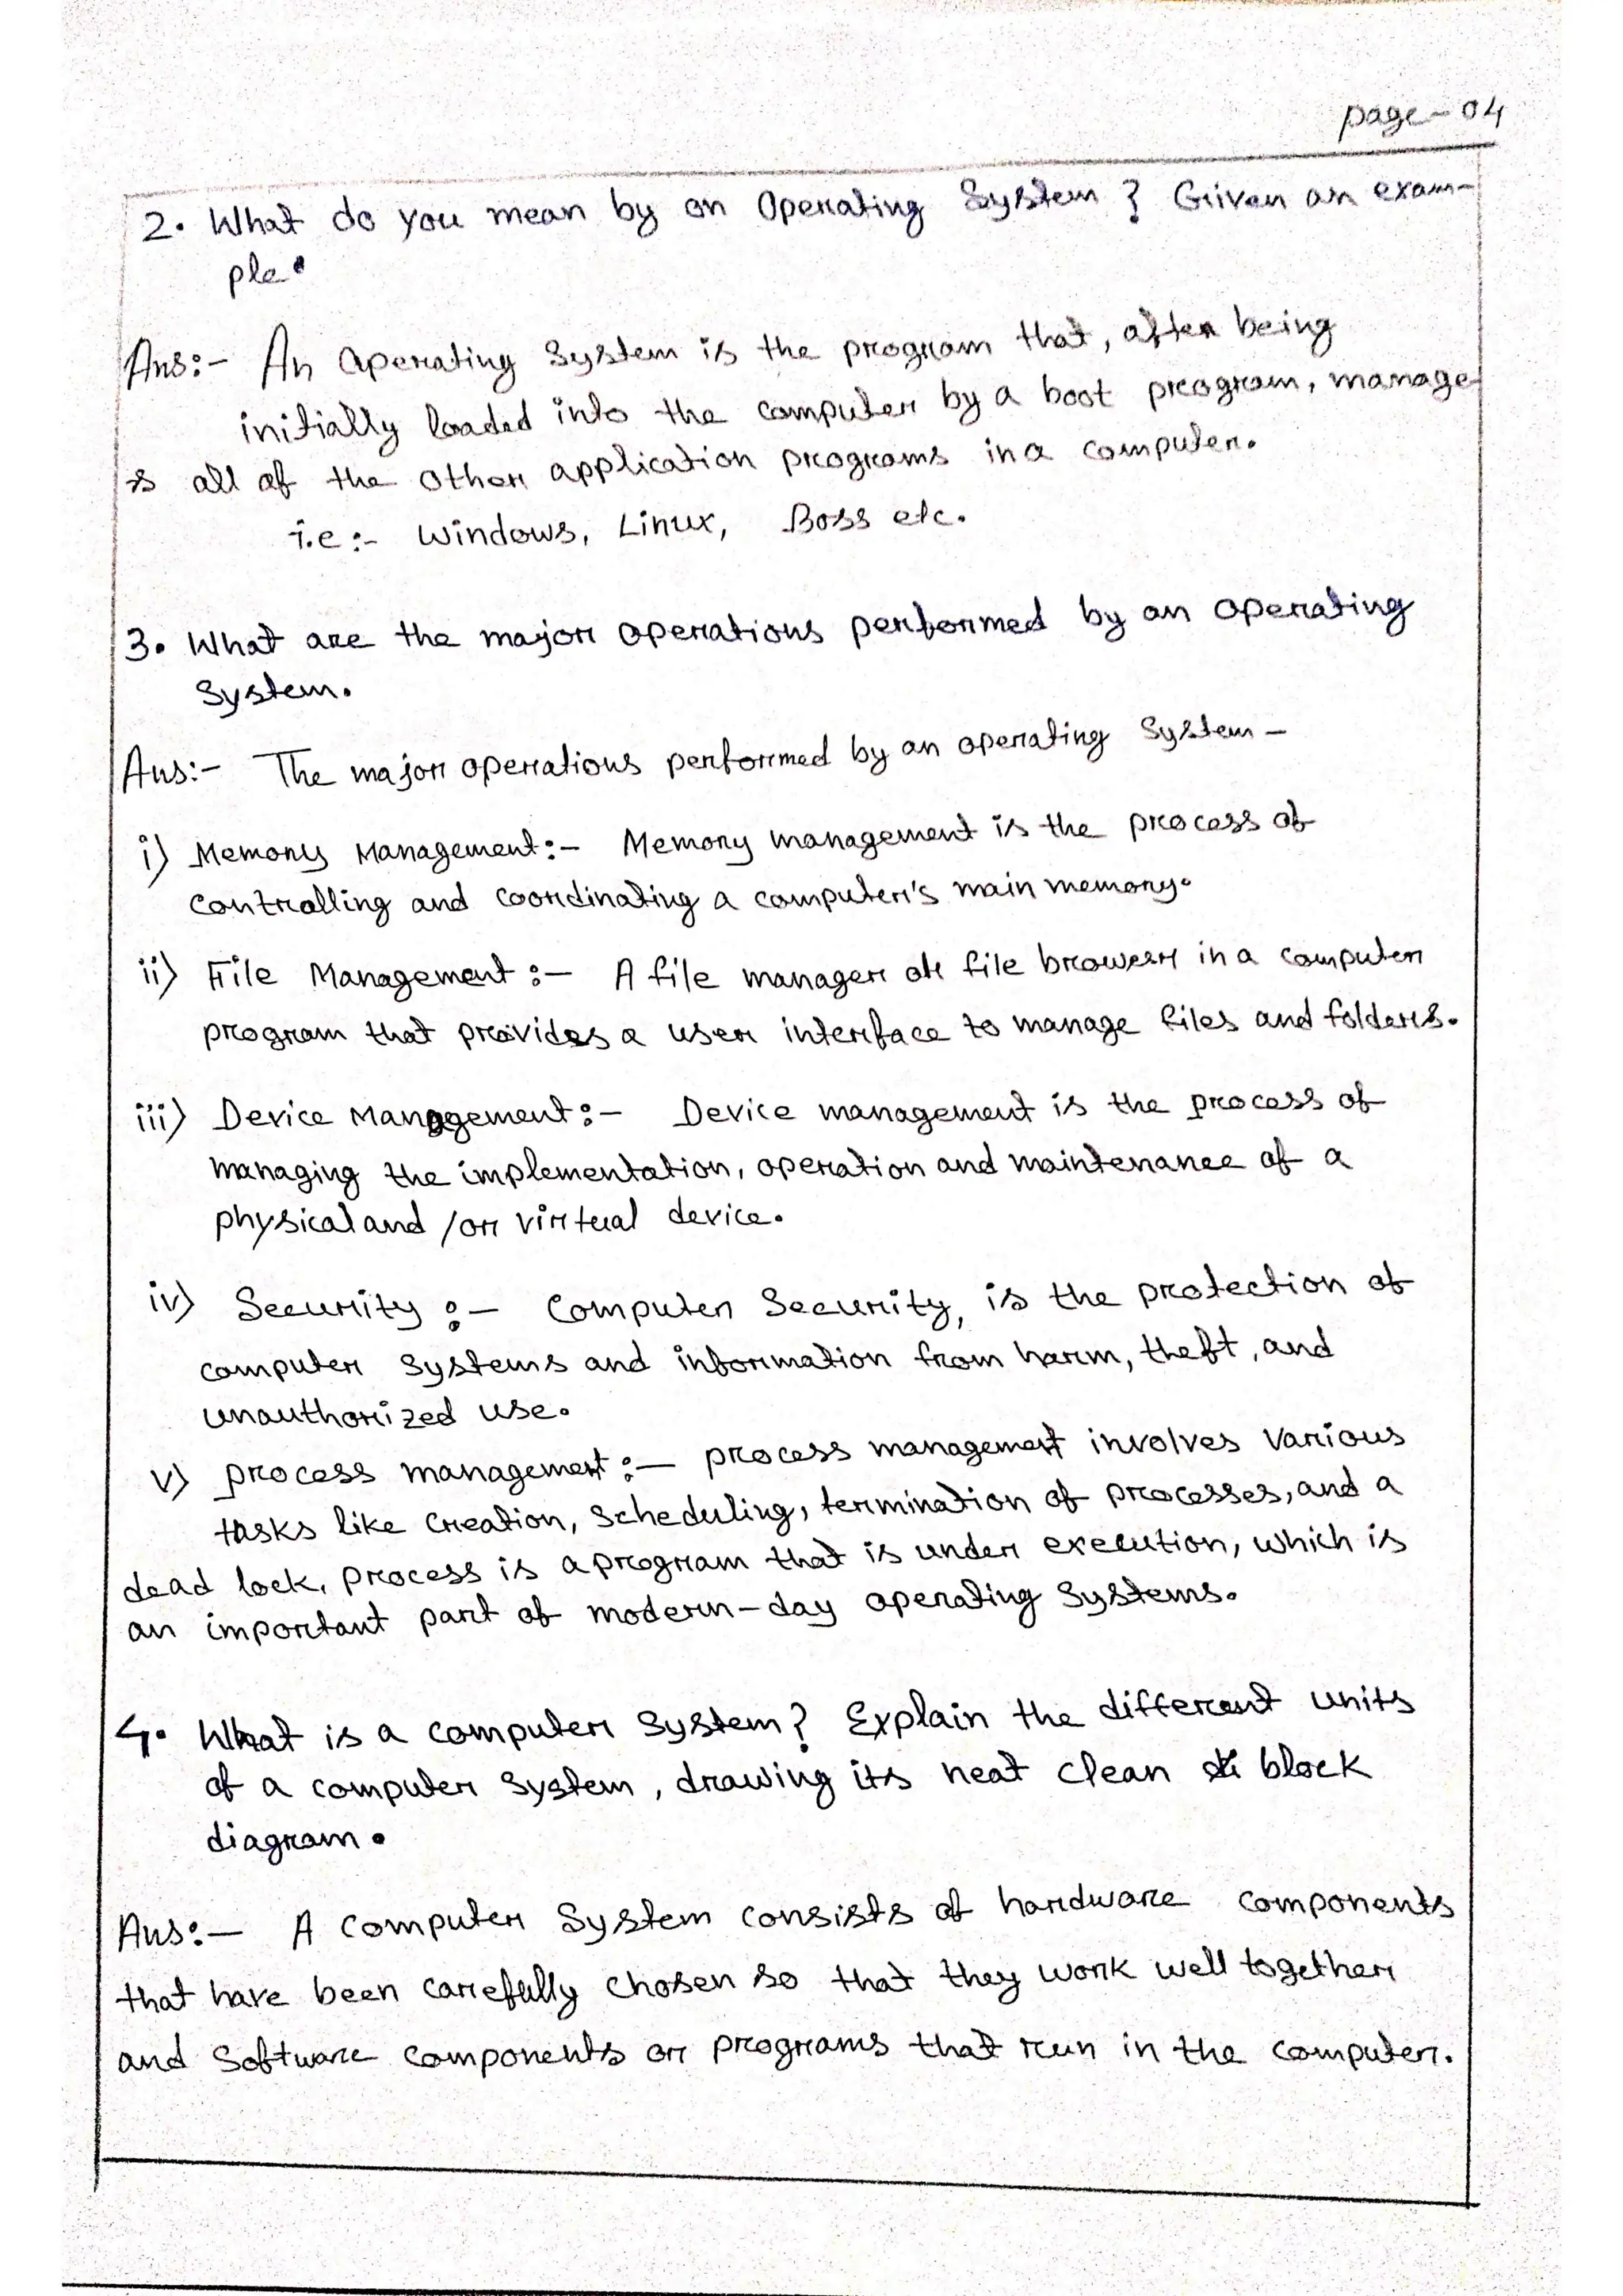 page-04
2. What do you mean by an Operating System? Given an exam-
ple.
Ans:- An Operating System is the program that, after being
initially loaded into the computer by a boot program, manage-
s all of the other application programs in a computer.
i.e:- Windows, Linux, Boss etc.
3. What are the major operations performed by an operating
System.
Ans:- The major operations performed by an operating System -
i) Memory Management:- Memory management is the process of
controlling and coordinating a computer's main memory.
ii) File Management :- A file manager or file browser in a computer
program that provides a user interface to manage files and folders.
iii) Device Management:- Device management is the process of
managing the implementation, operation and maintenance of a
physical and /or virtual device.
iv) Security :- Computer Security, is the protection of
computer systems and information from harm, theft, and
unauthorized use.
v) process management :- process management involves various
tasks like creation, scheduling, termination of processes, and a
dead lock, process is a program that is under execution, which is
an important part of modern-day operating systems.
4. What is a computer system? Explain the different units
of a computer system, drawing its neat clean block
diagram.
Ans:- A Computer System consists of hardware components
that have been carefully chosen so that they work well together
and Software components or programs that run in the computer.